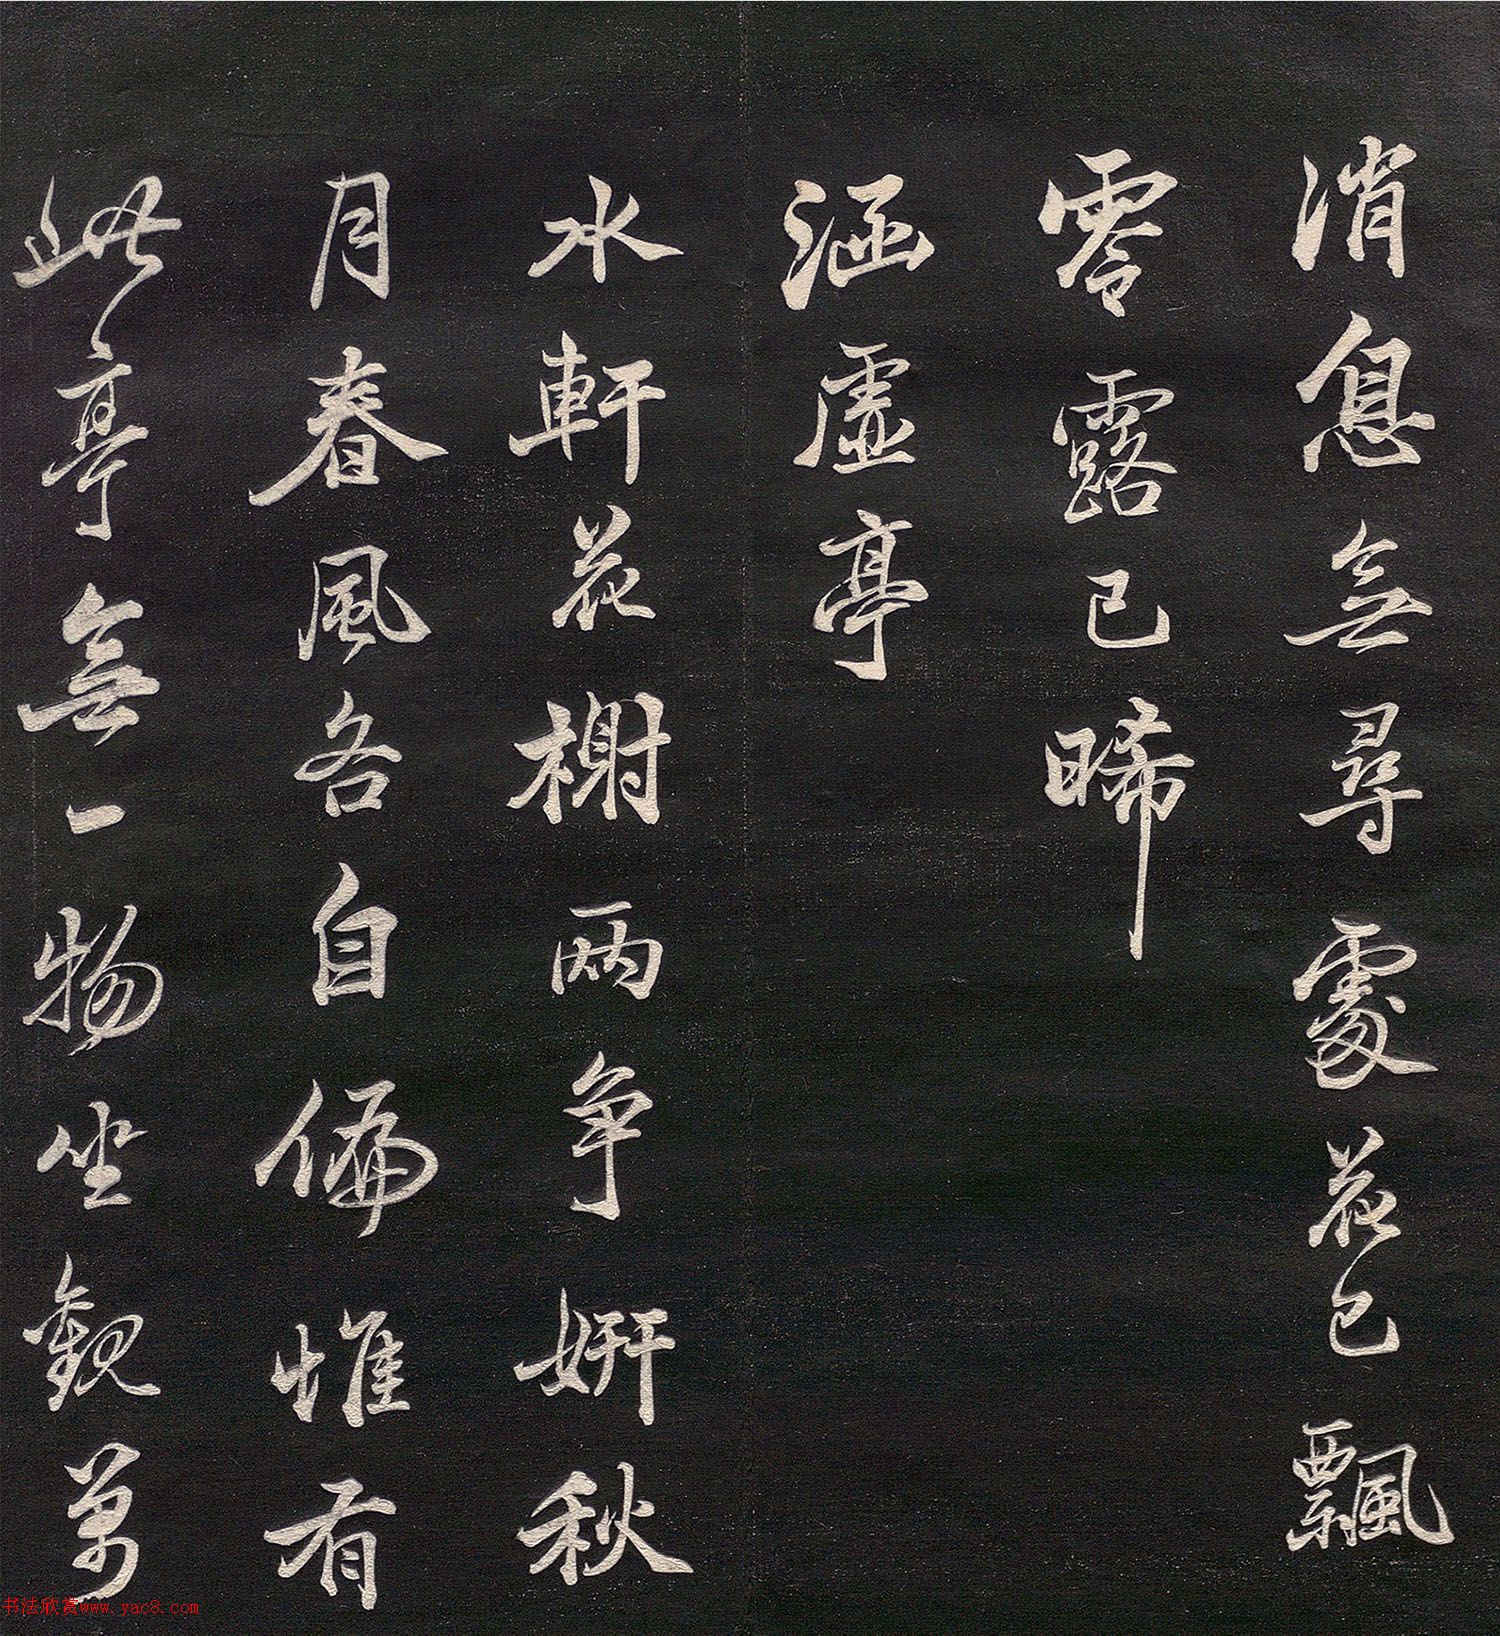 消息無尋處花已飄
零露已晞
涵虛亭
水軒花榭兩争妍秋
月春風各自偏惟有
此亭無一物坐觀萬
书法欣赏www.yac8.com